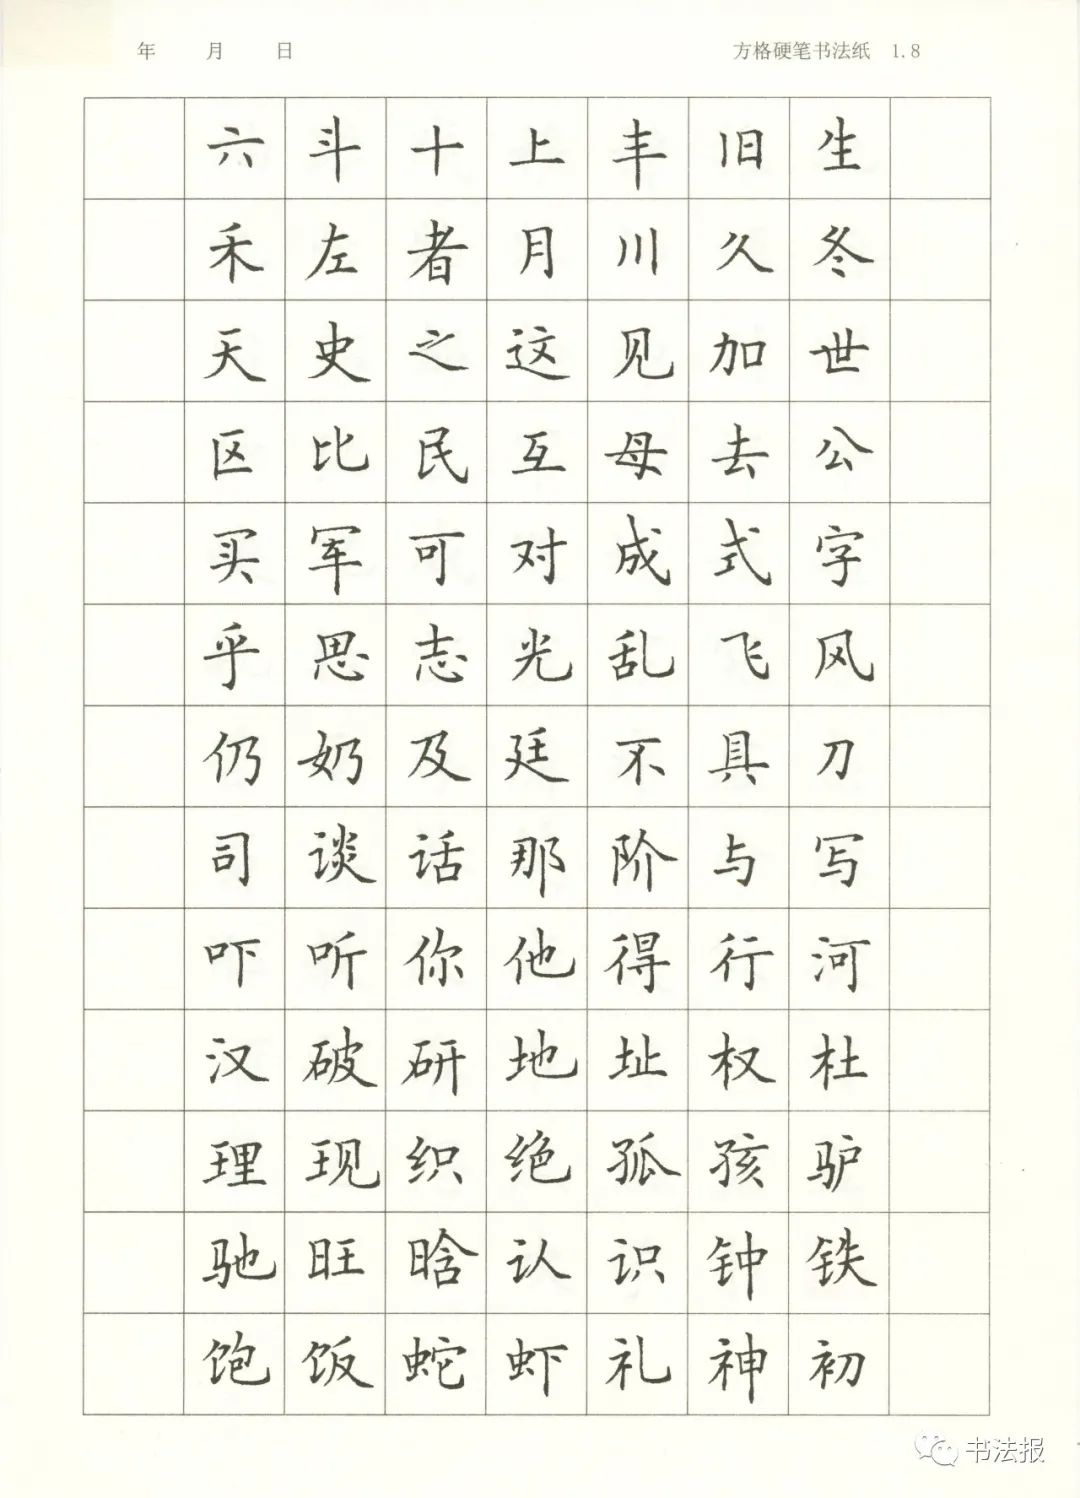 年 月 日 方格硬笔书法纸 1.8
六斗十上丰旧生
禾左者月川久冬
天史之这见加世
区比民互母去公
买军可对成式字
乎思志光乱飞风
仍奶及廷不具刀
司谈话那阶与写
吓听你他得行河
汉破研地址权杜
理现织绝孤孩驴
驰旺晗认识钟铁
饱饭蛇虾礼神初
书法报